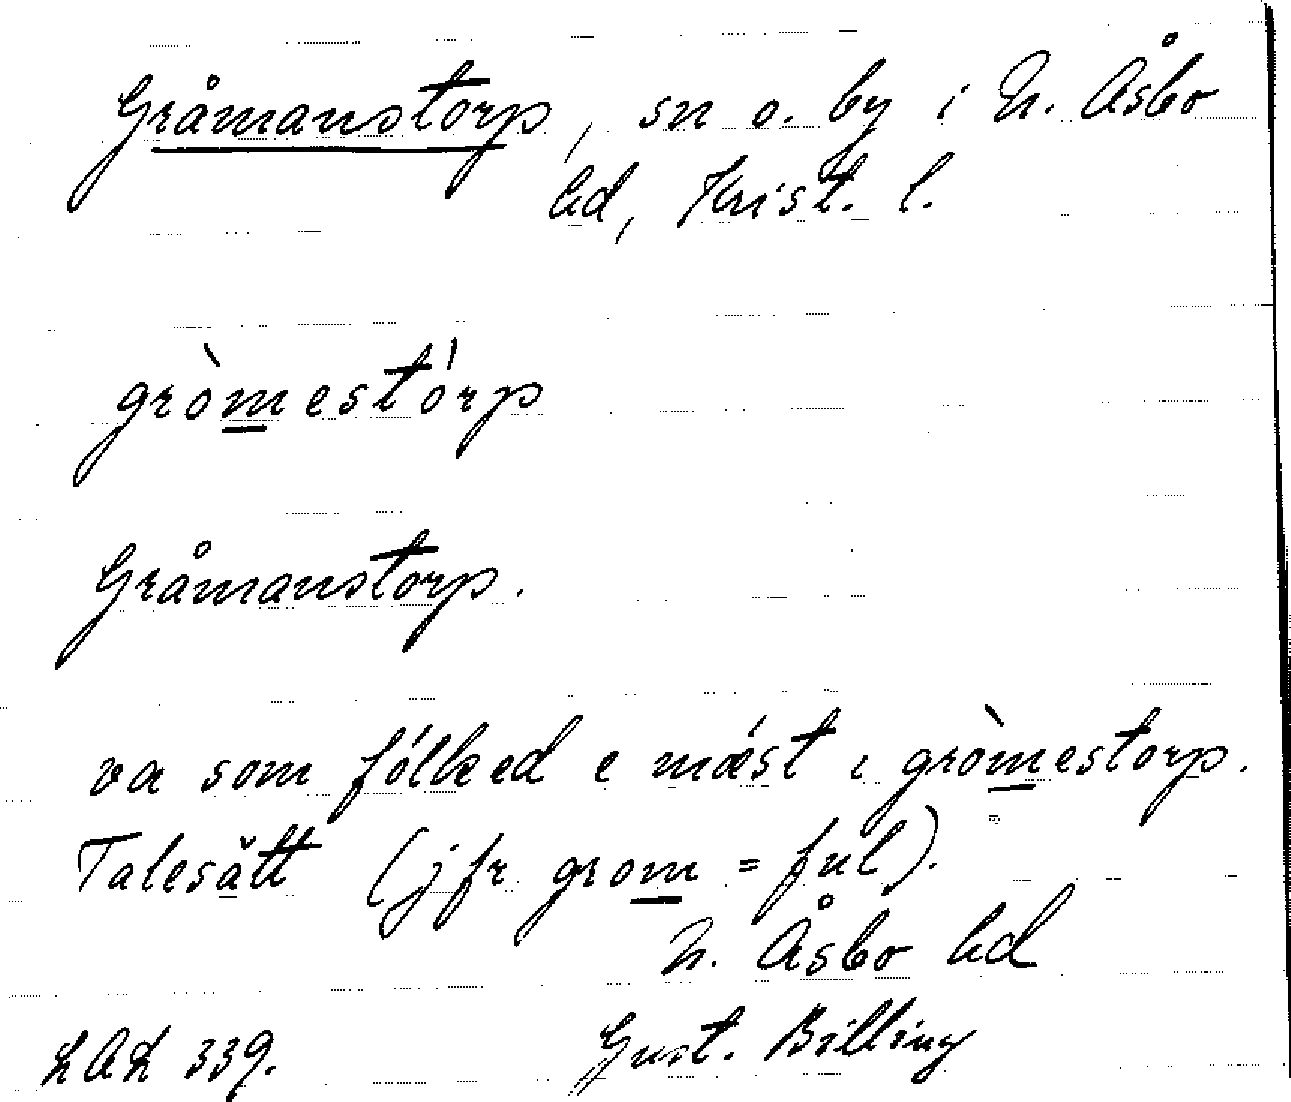 Gråmanstorp, sn o. by i N. Åsbo
hd, Krist. l.
gròmestórp
Gråmanstorp.
va som fólked e mǽst ı gròmestorp.
Talesätt (jfr grom = ful).
N. Åsbo hd
LAL 339. Gust. Billing